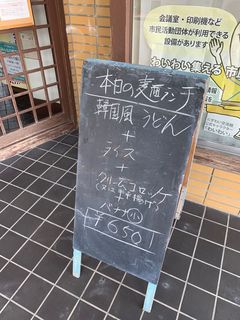 会議室・印刷機など
市民活動団体が利用できる
設備があります
わいわい集える市
本日の麺ランチ
韓国風 うどん
+
ライス
+
クリームコロッケ
+
バナナ(小)
¥650